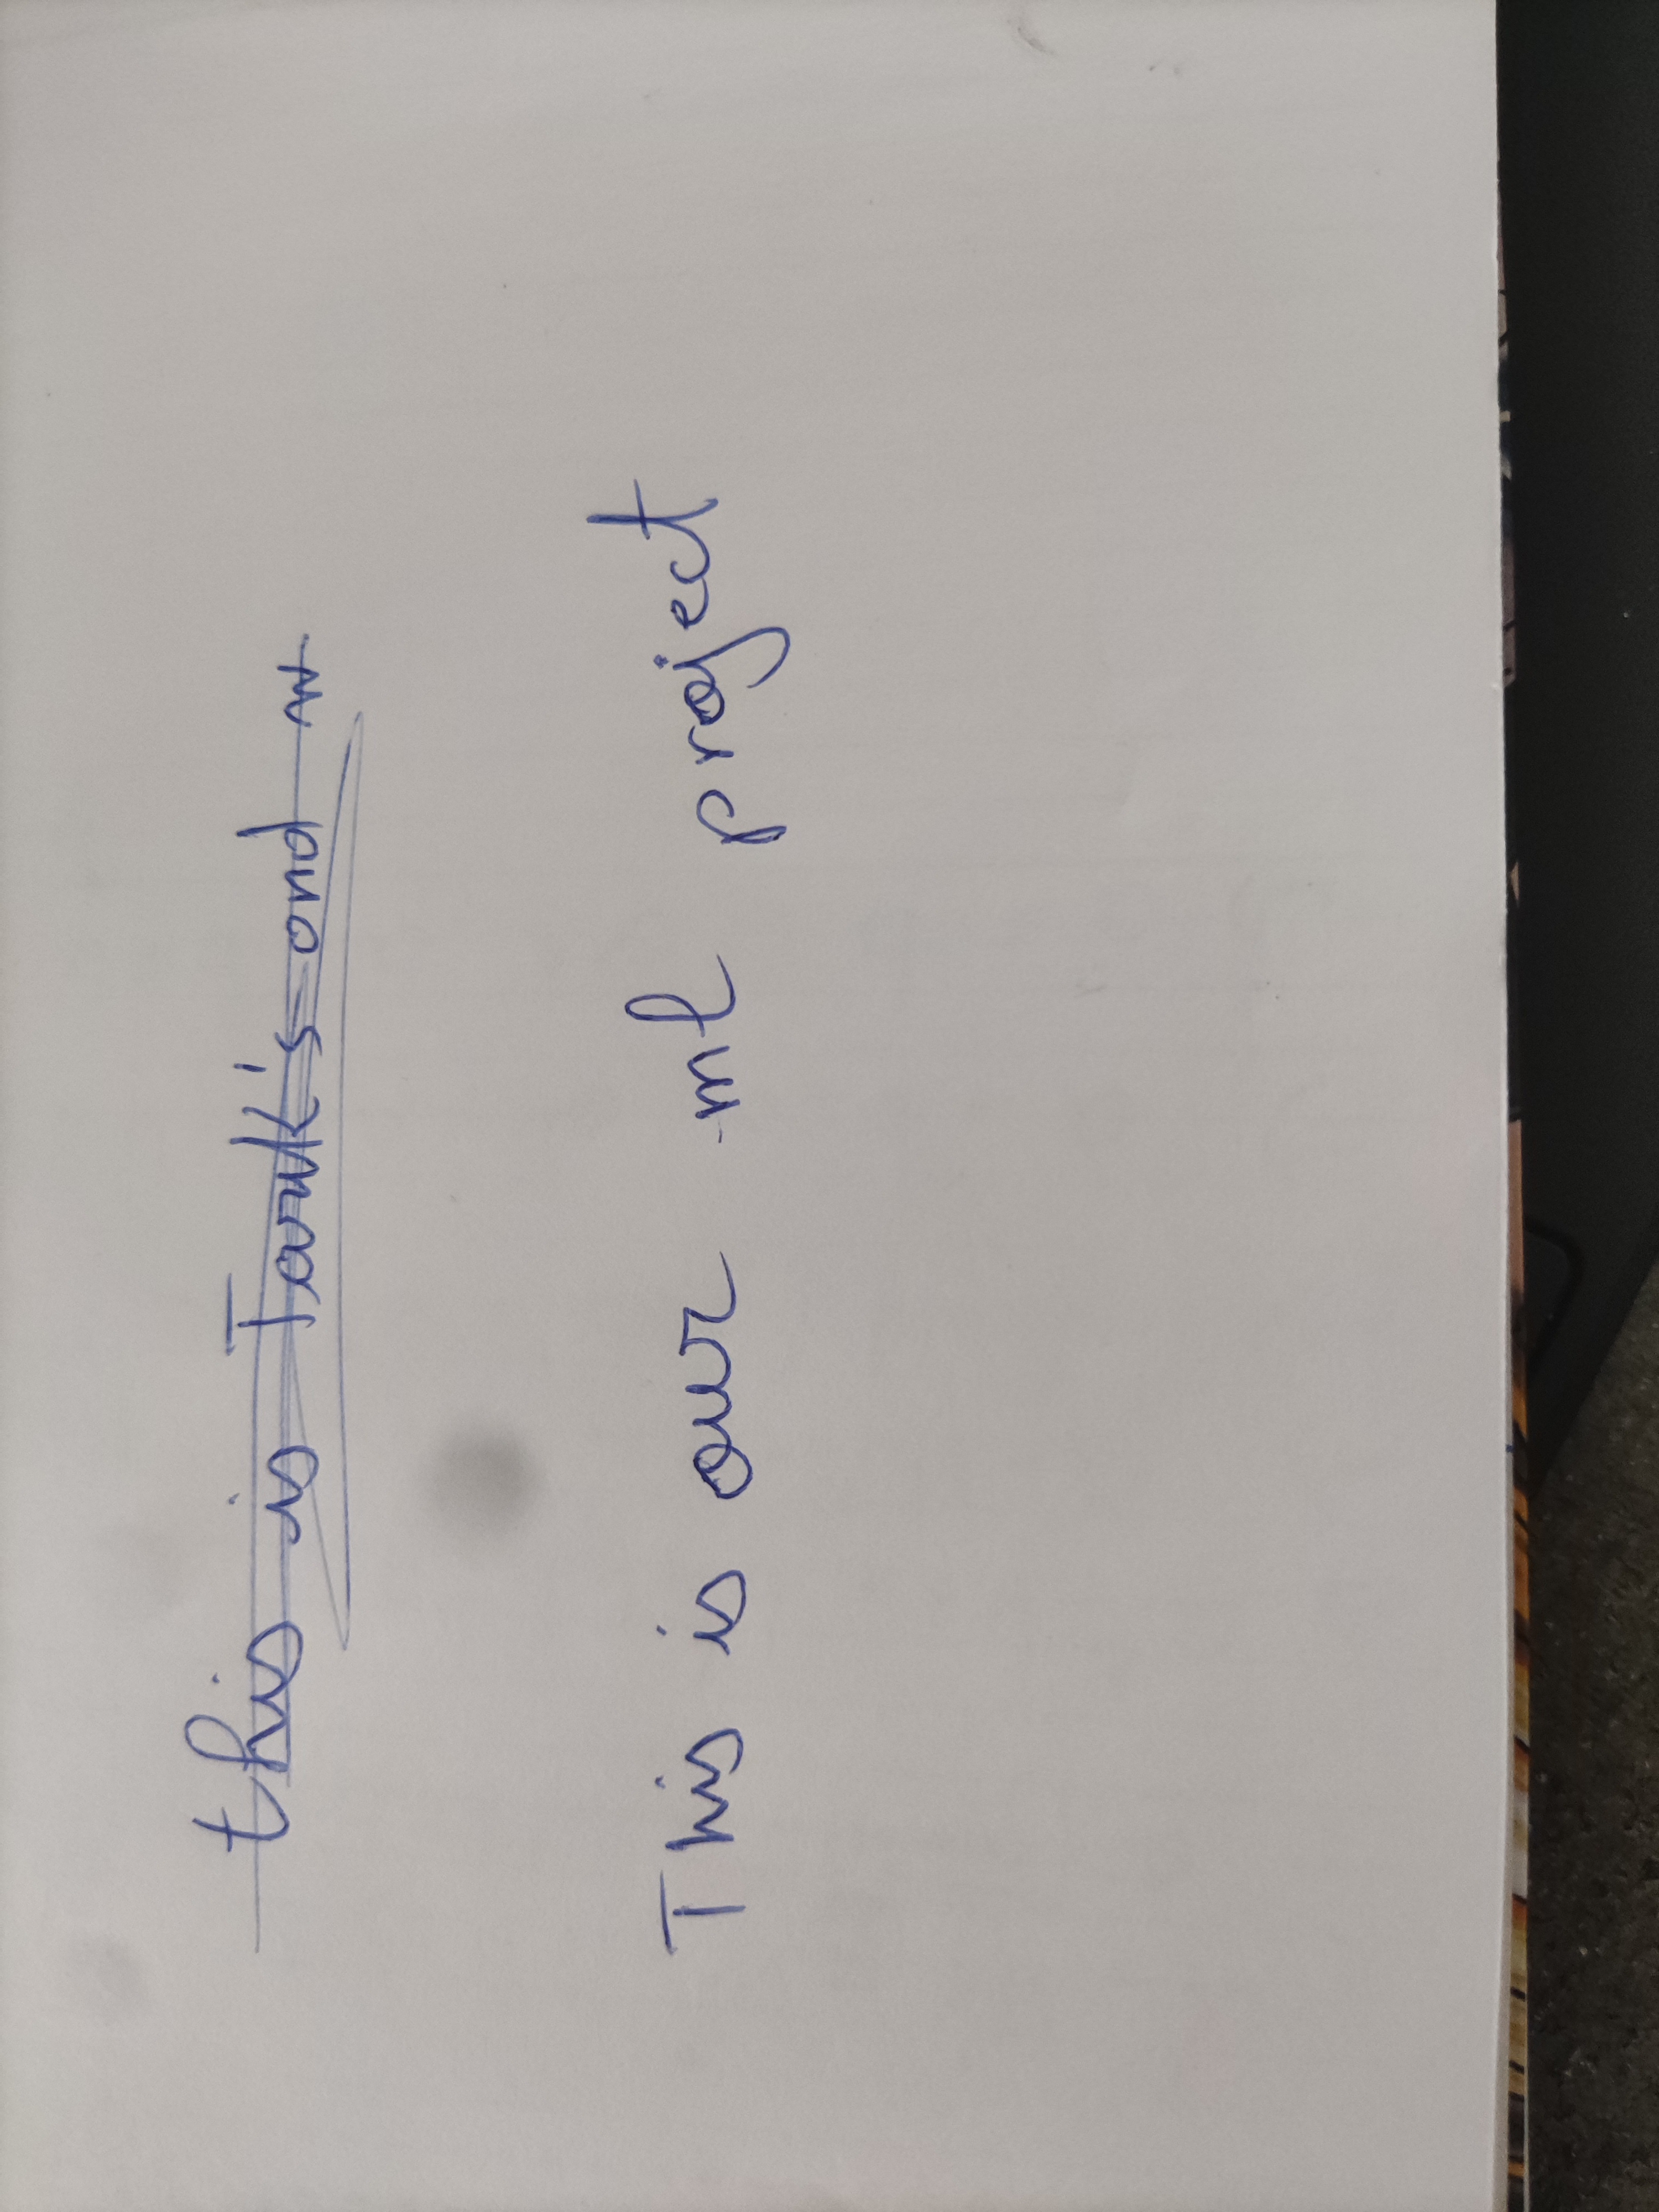 this is Tarak's and m
This is our ml project